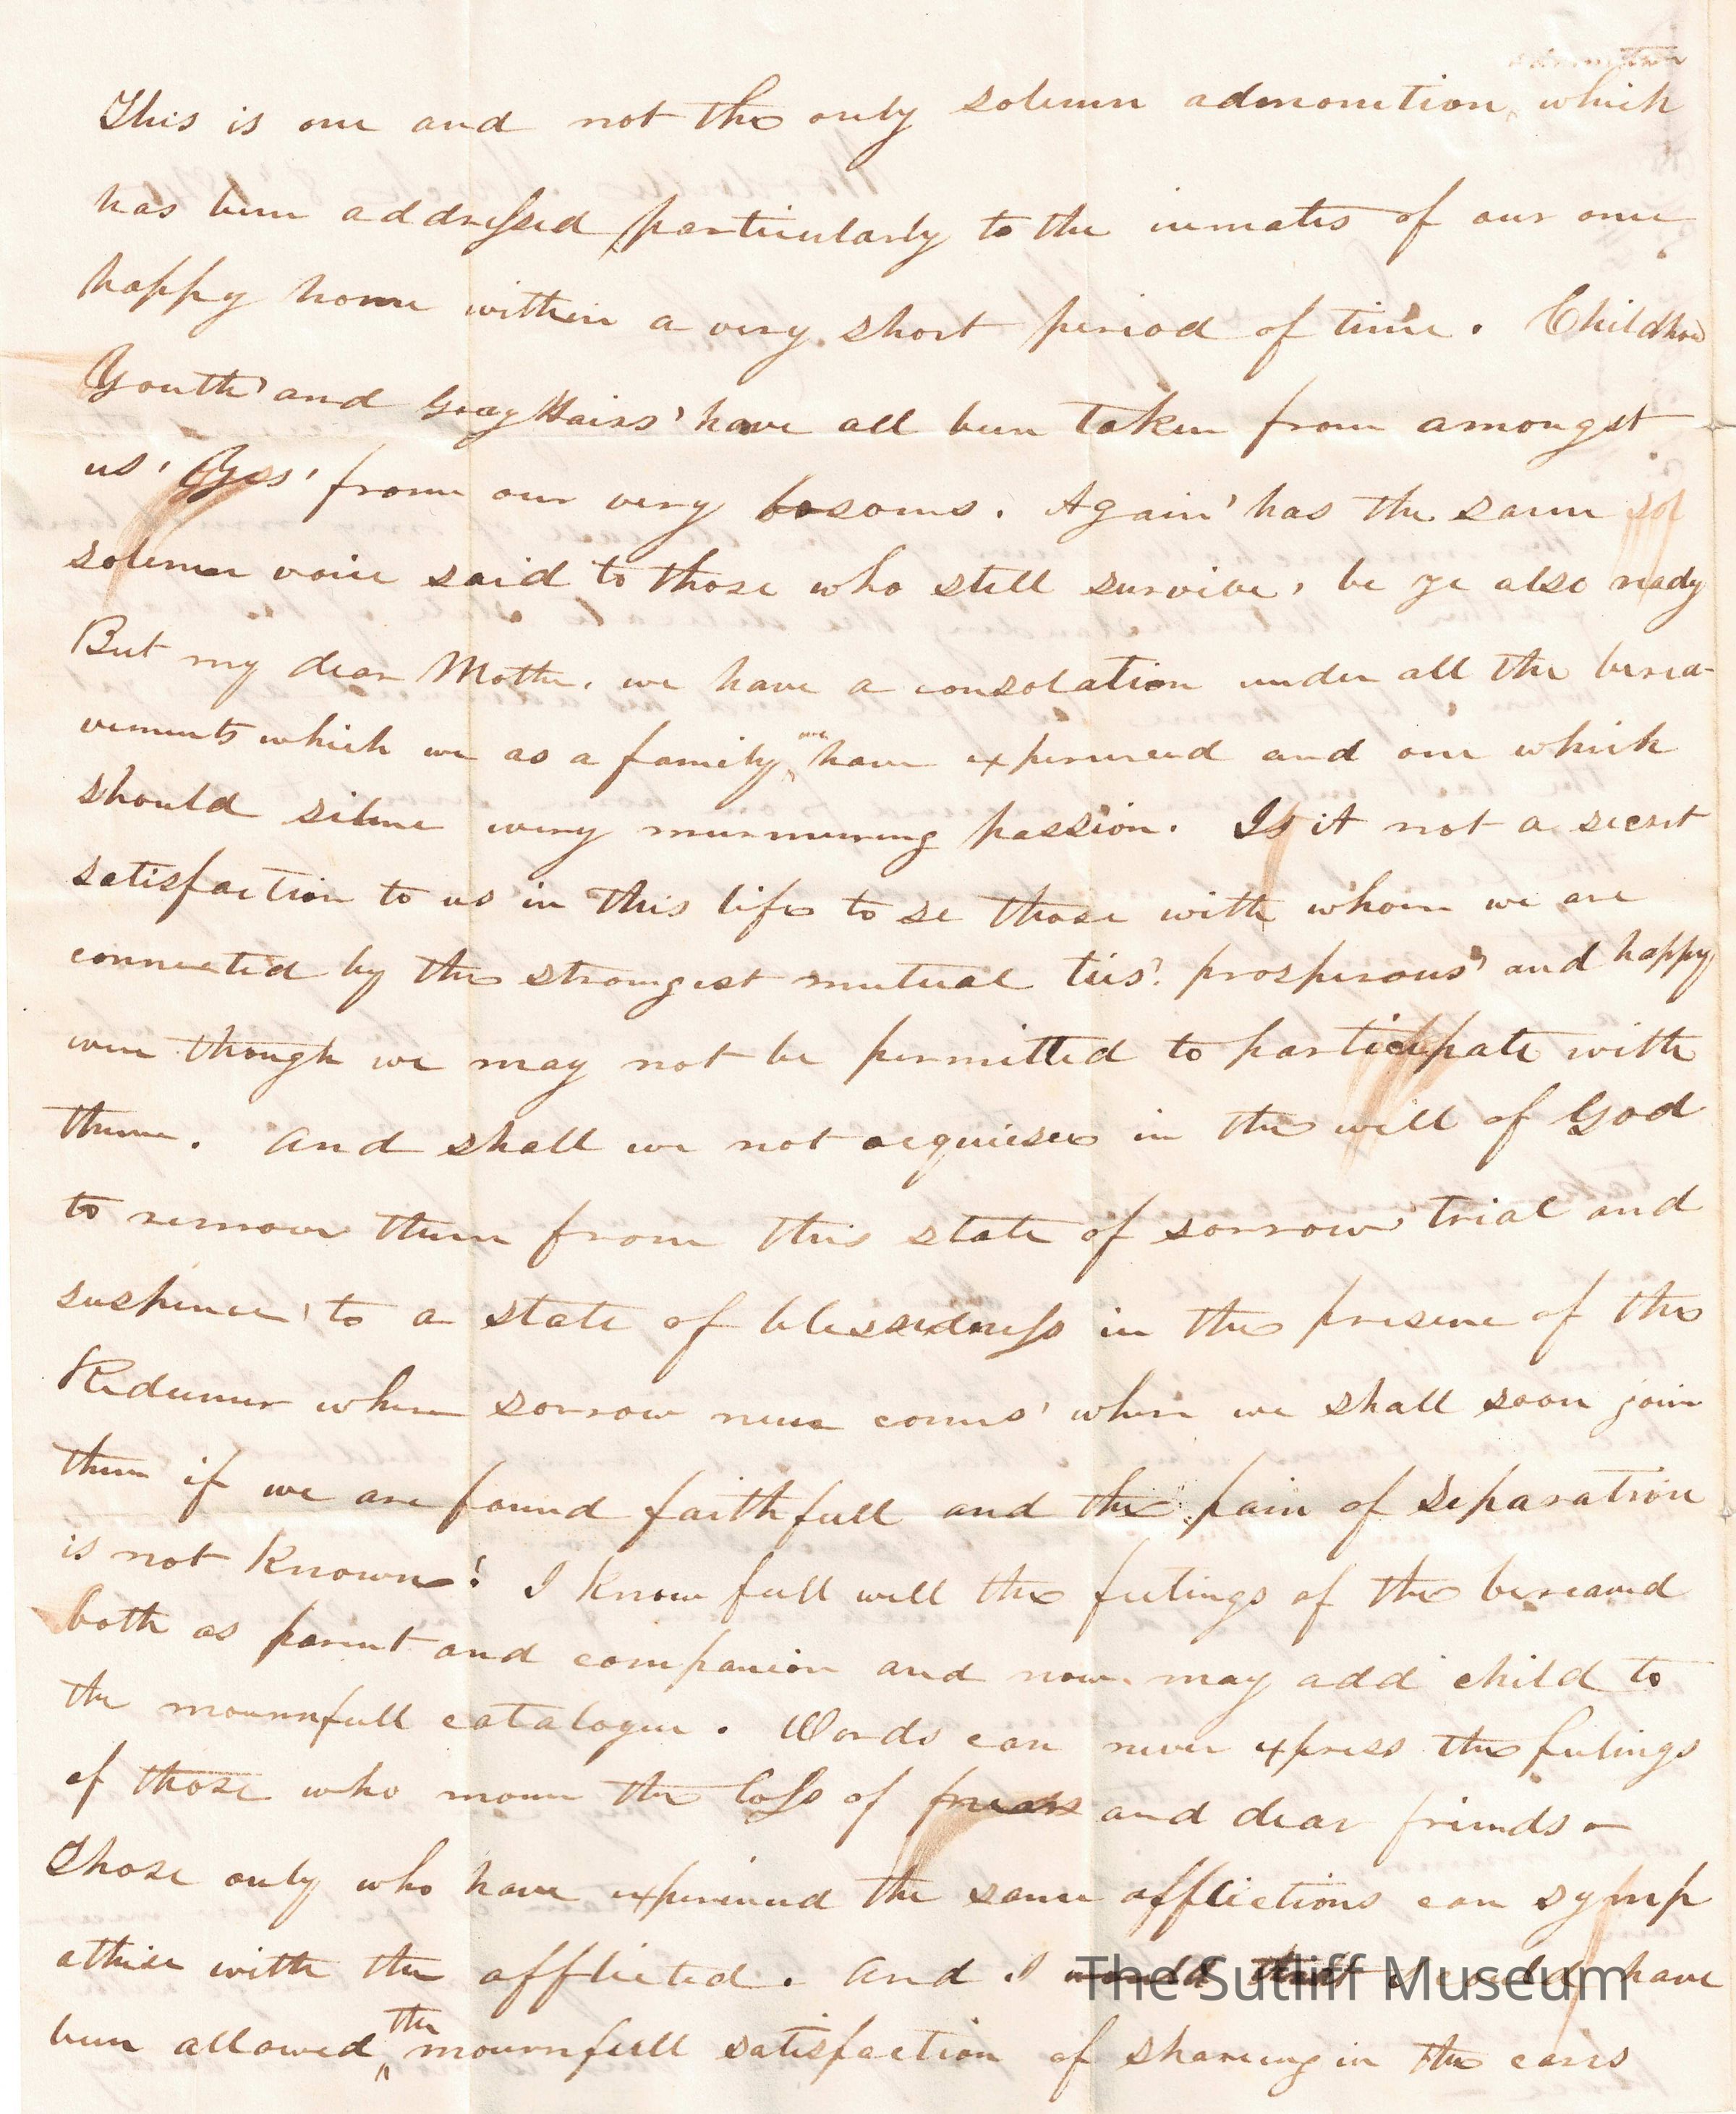 This is one and not the only solemn admonition, which
has been addressed particularly to the inmates of our once
happy home within a very short period of time. Childhood
Youth' and Gray Hairs' have all been taken from amongst
us, Yes' from our very bosoms. Again' has the same sol
solemn voice said to those who still survive, be ye also ready
But my dear Mother, we have a consolation under all the berea-
vements which we as a family have experienced and one which
should silence every murmuring passion. Is it not a secret
satisfaction to us in this life to se those with whom we are
connected by the strongest mutual ties' prosperous' and happy
even though we may not be permitted to participate with
them. And shall we not acquiesce in the will of God
to remove them from this state of sorrow trial and
suspence' to a state of blessedness in the presence of the
Redeemer where sorrow never comes' where we shall soon join
them if we are found faithfull and the pain of separation
is not known! I know full well the feelings of the bereaved
both as parent and companion and now may add child to
the mournfull catalogue. Words can never express the feelings
of those who mourn the loss of near and dear friends -
Those only who have experienced the same afflictions can symp
athise with the afflicted. And I would that I could have
been allowed the mournfull satisfaction of sharing in the cares
The Sutliff Museum